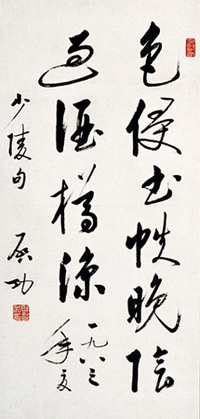 色侵书帙晚陰
過酒樽涼 一九八三年夏
少陵句 启功